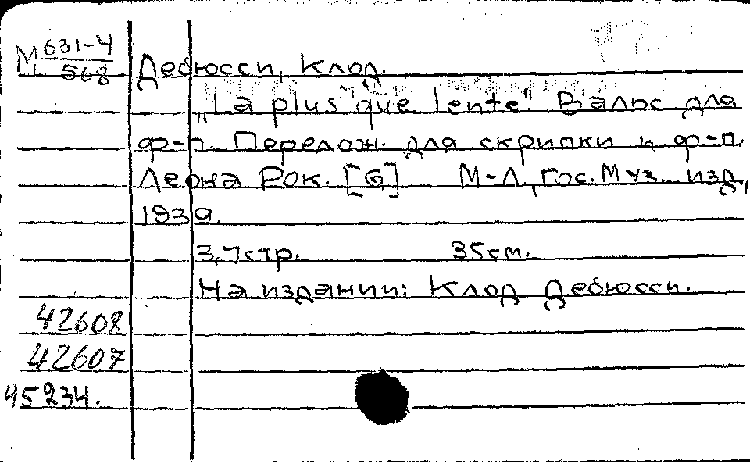 М 631-4
568
Дебюсси, Клод.
„La plus que lente" Вальс для
ф-п. Перелож. для скрипки и ф-п.
Леона Рок. [G] М-Л, Гос. Муз. изд,
1939.
3,7стр. 35см.
На издании: Клод Дебюсси.
42608
42607
45234.